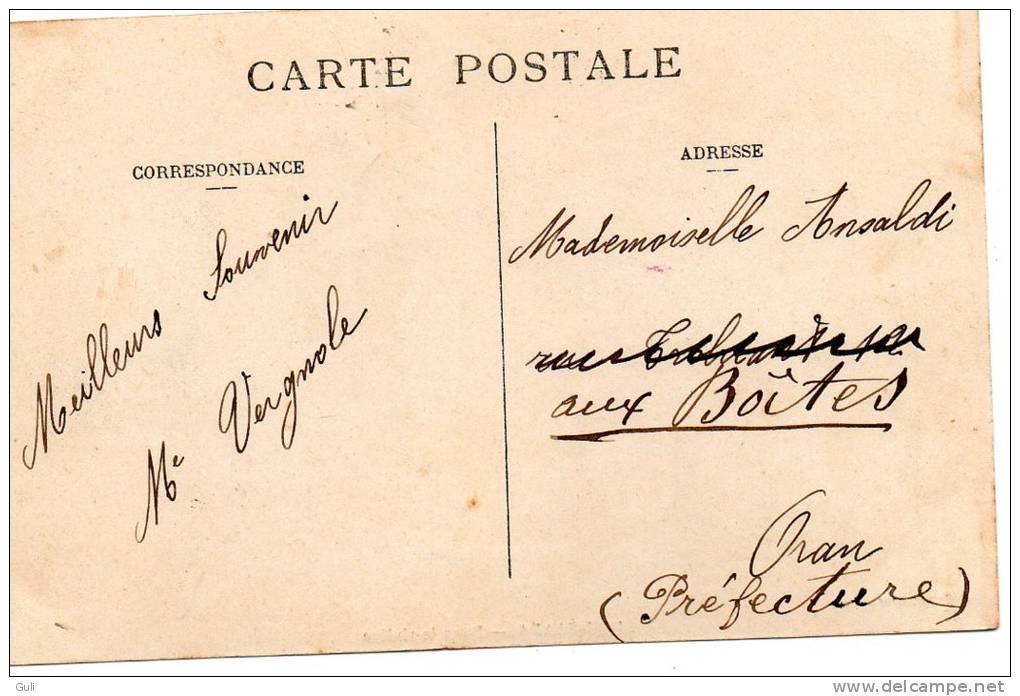 CARTE POSTALE
CORRESPONDANCE
Meilleurs Souvenir
Me Vergnole
ADRESSE
Mademoiselle Ansaldi
rue
aux Boîtes
Oran
(Préfecture)
Guli
www.delcampe.net